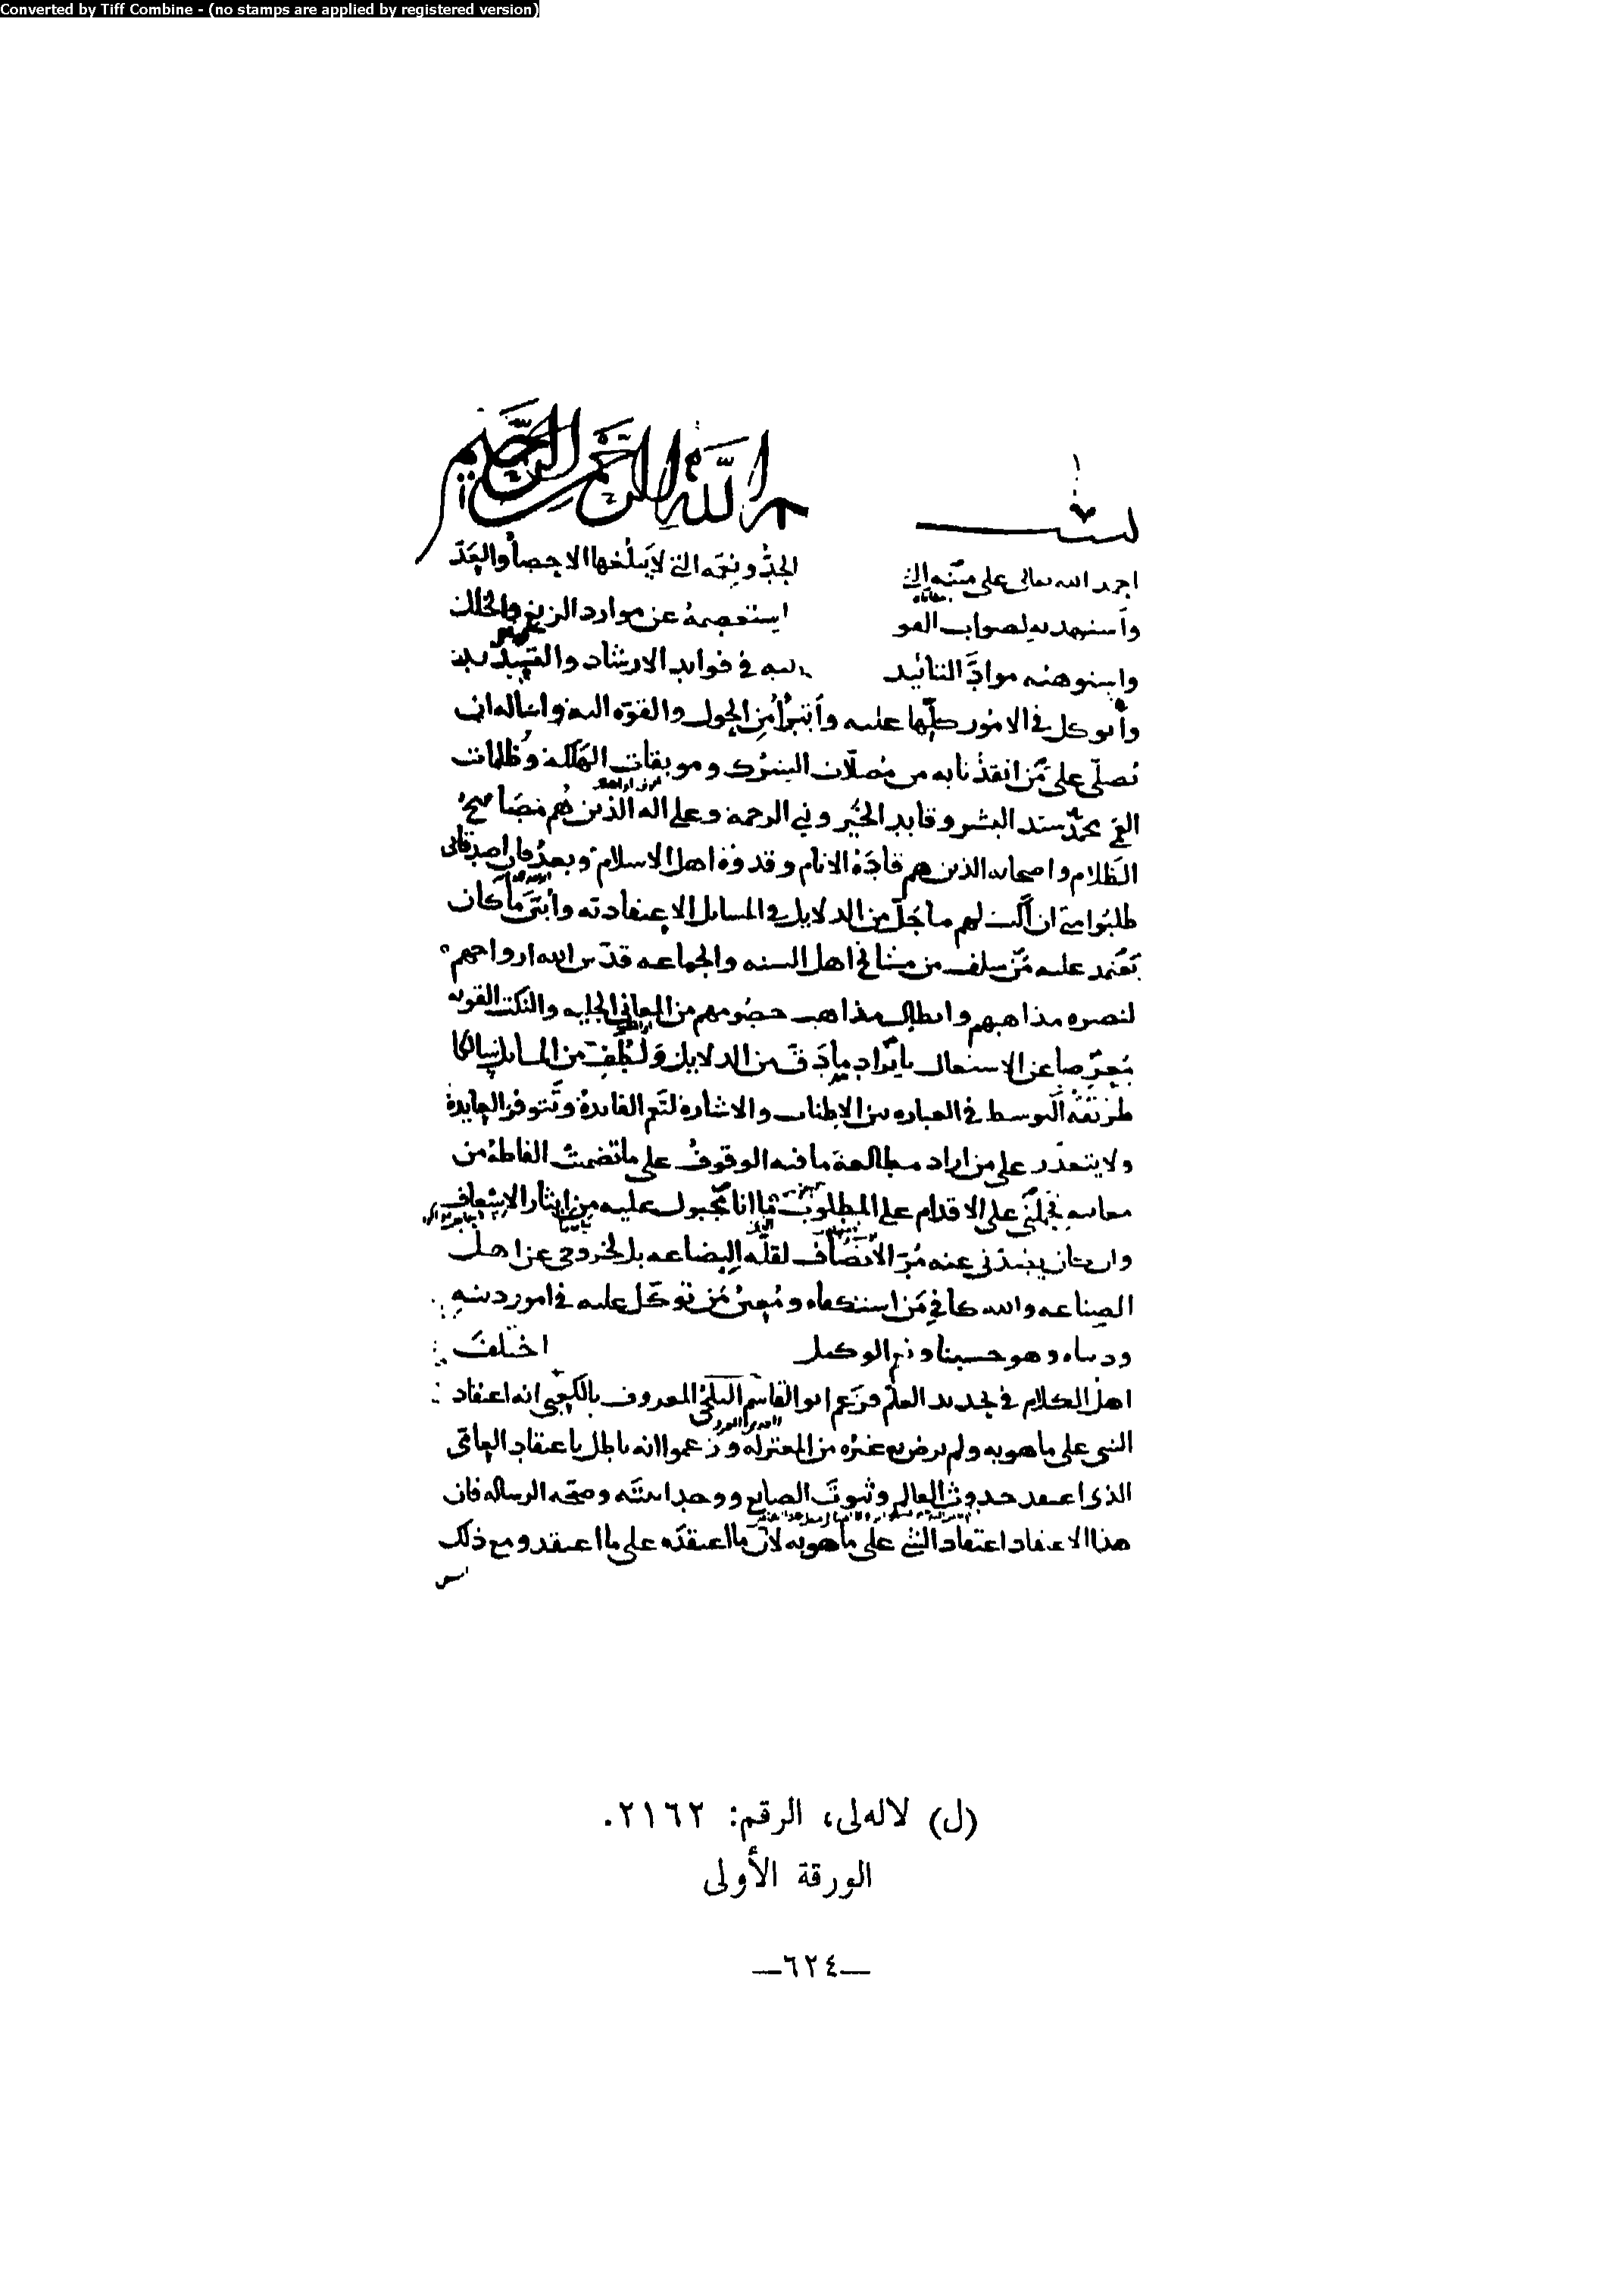 Converted by Tiff Combine - (no stamps are applied by registered version)
بسم الله الرحمن الرحيم
احمد الله تعالى على مننه التي الحد ونعمه التي لا يبلغها الاحصا والعد
واستهديه لصواب القو استعصمه عن موارد الزيغ والخلل
مواد التائيد اليه في فوايد الارشاد والتسديد
واتوكل في الامور كلها عليه واتبرأ من الحول والقوة اليه واساله ان
نصلي على من انقذنا به من مضلات الشرك وموبقات الهلكه وظلمات
الغي محمد سيد البشر وقايد الخير ونبي الرحمة وعلى اله الذين هم مصابيح
الظلام واصحابه الذين هم قادة الانام وقدوة اهل الاسلام وبعد فان اصدقائي
طلبوا مني ان اكتب لهم ما جل من الدلايل في المسايل الاعتقادية وأبين ما كان
يعتمد عليه من سلف من مشايخ اهل السنه والجماعه قدس الله ارواحهم
لنصره مذاهبهم وابطال مذاهب خصومهم من المعاني الجليه والنكت القويه
معرضا عن الاشتغال بايراد ما دق من الدلايل ولطف من المسايل سالكا
طريقة التوسط في العباره بين الاطناب والاشارة لتتم الفايدة وتتوفر العايدة
ولا يتعذر على من اراد مطالعة ما فيه الوقوف على ما تضمنت الفاظه من
معانيه فحملني على الاقدام على المطلوب ما انا مجبول عليه من ايثار الاسعاف
وان كان يجبذني عنه الانصاف لقله البضاعه بل لخروجي عن اهل
الصناعه والله كافي من استكفاه ومعين من توكل عليه في امور دينه
ودنياه وهو حسبنا ونعم الوكيل اختلف
اهل الكلام في تحديد العلم فزعم ابو القاسم البلخي المعروف بالكعبي انه اعتقاد
الشي على ما هو به ولم يرض به غيره من المعتزله وزعموا انه باطل باعتقاد العامي
الذي اعتقد حدوث العالم وثبوت الصانع ووحدانيته وصحه الرساله فان
هذا الاعتقاد اعتقاد الشي على ما هو به لان ما اعتقده على ما اعتقد ومع ذلك
(ل) لاله‌لى، الرقم: ٢١٦٢.
الورقة الأولى
—٦٢٤—